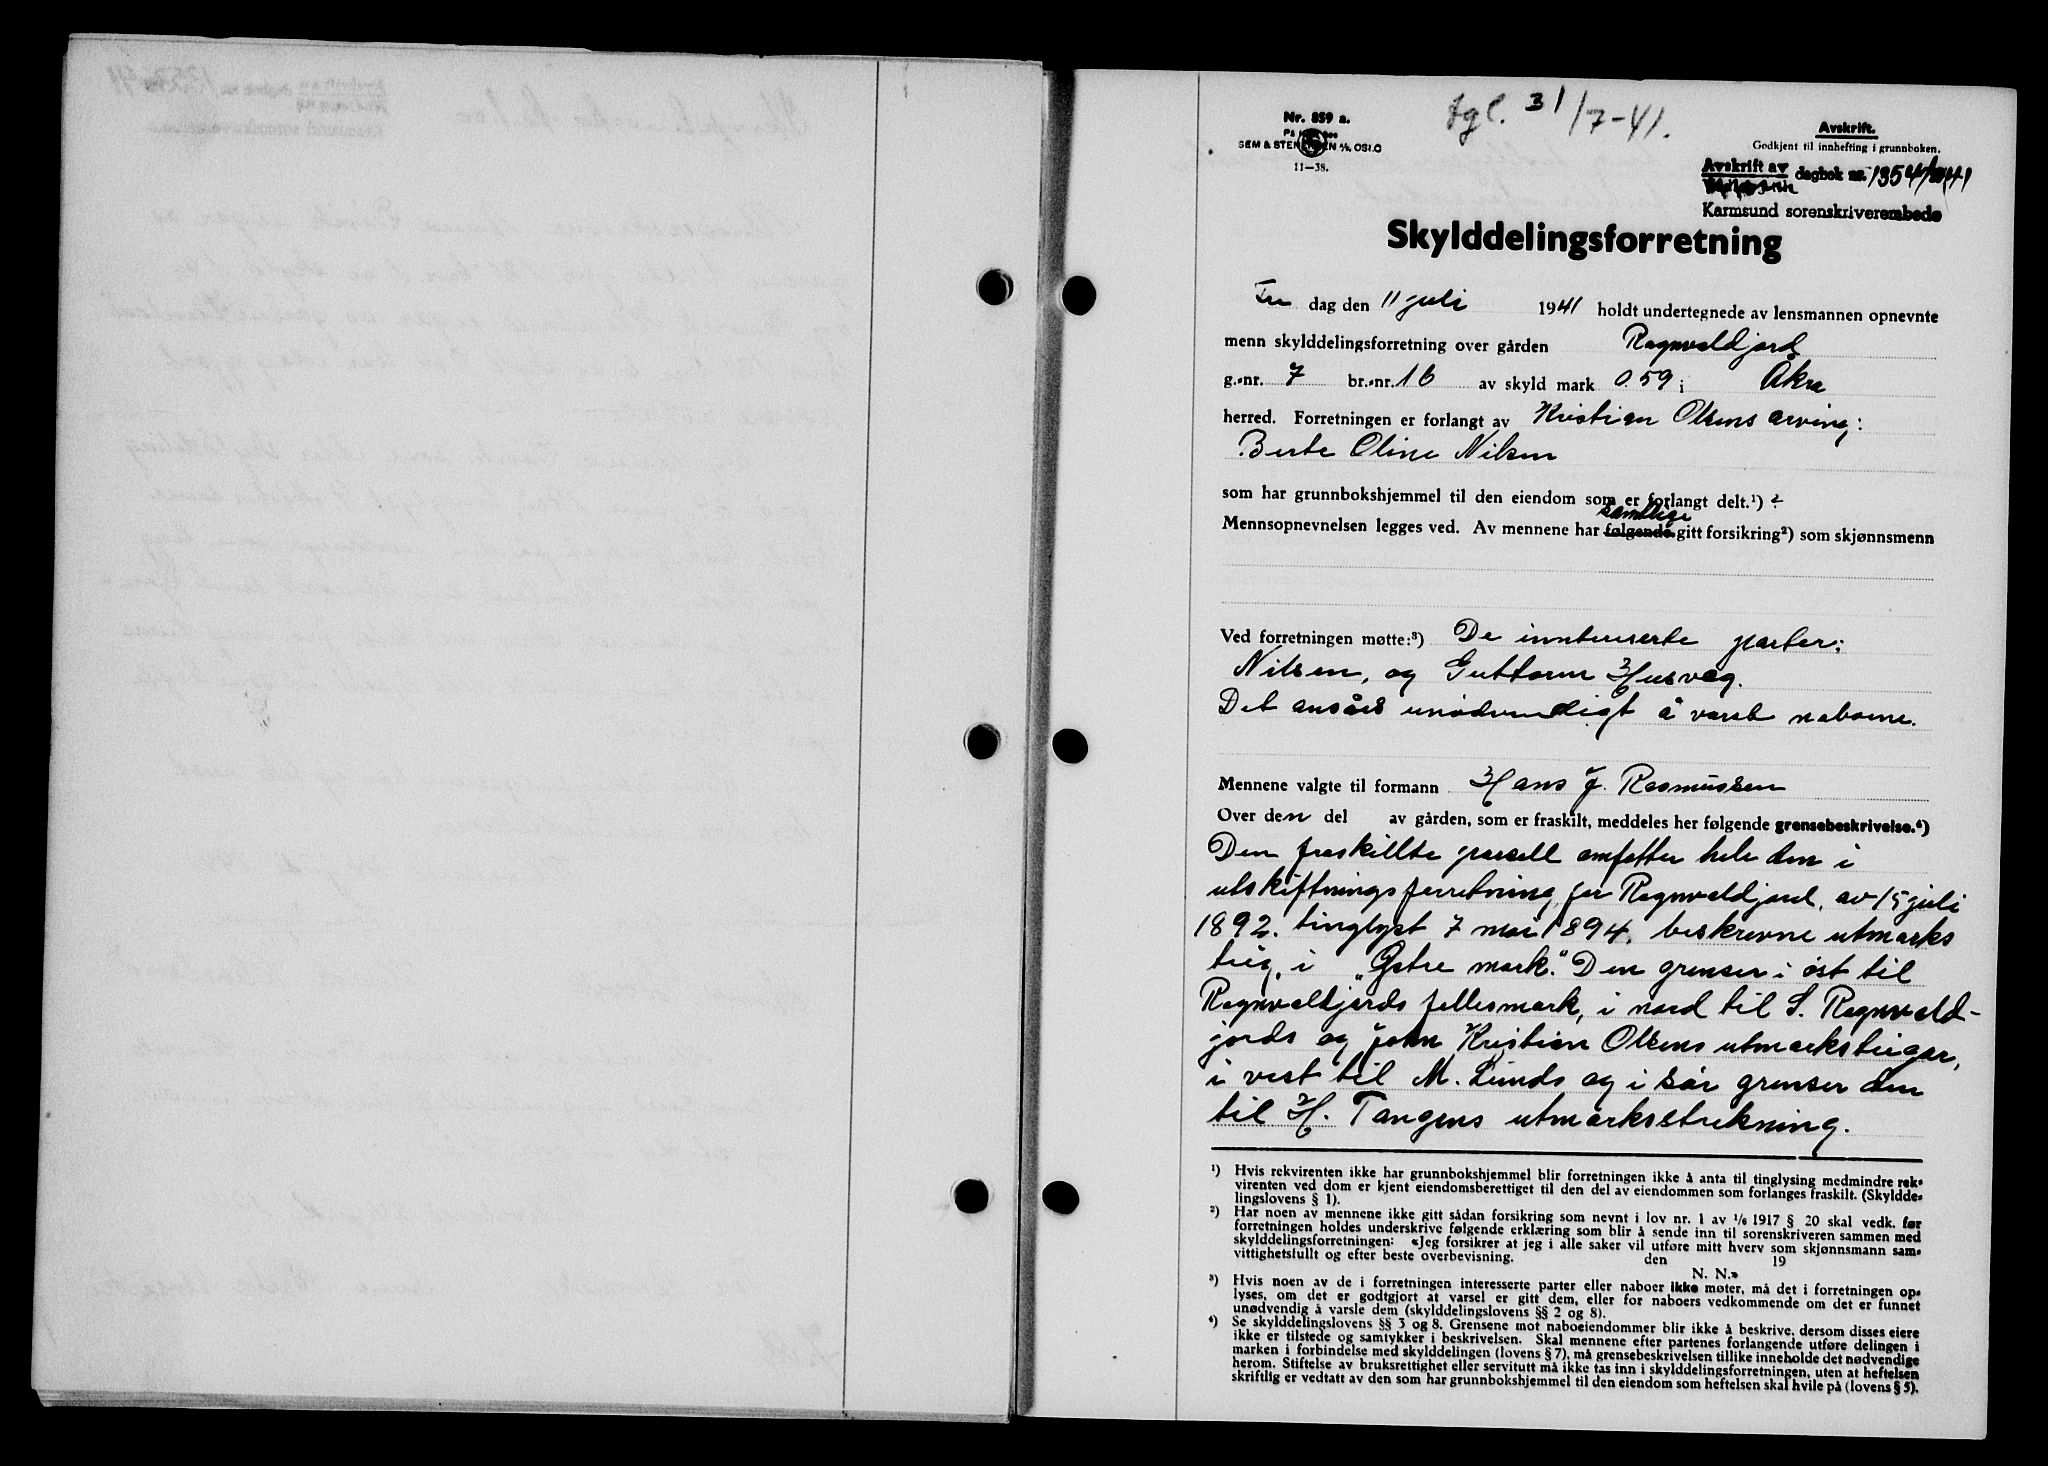 Nr. 859 a.
SEM & STENERSEN A/S, OSLO
11—38.
tgl. 31/7-41.
Avskrift.
Godkjent til innhefting i grunnboken.
Avskrift av dagbok nr. 1354/1941
Karmsund sorenskriverembede
Skylddelingsforretning
Fre dag den 11 juli 1941 holdt undertegnede av lensmannen opnevnte
menn skylddelingsforretning over gården Ragnvaldjord
g.-nr. 7 br.-nr. 16 av skyld mark 0.59 i Åkra
herred. Forretningen er forlangt av Kristian Olsens arving:
Berte Oline Nilsen
som har grunnbokshjemmel til den eiendom som er forlangt delt.¹)
samtlige
Mennsopnevnelsen legges ved. Av mennene har følgende gitt forsikring²) som skjønnsmenn
Ved forretningen møtte:³) De inntereserte parter:
Nilsen, og Guttorm Husvæg.
Det ansåes unødvendigt å varsle naboene.
Mennene valgte til formann Hans J. Rasmussen
Over den del av gården, som er fraskilt, meddeles her følgende grensebeskrivelse.⁴)
Den fraskillte parsell omfatter hele den i
utskiftningsforretning for Ragnvaldjord, av 15 juli
1892. tinglyst 7 mai 1894, beskrevne utmarks
teig, i "Østre mark." Den grenser i øst til
Ragnvaldjords fellesmark, i nord til S. Ragnvald-
jords og John Kristian Olsens utmarksteigar,
i vest til M. Lunds og i sør grenser den
til H. Tangens utmarksstrekning.
¹) Hvis rekvirenten ikke har grunnbokshjemmel blir forretningen ikke å anta til tinglysing medmindre rek-
virenten ved dom er kjent eiendomsberettiget til den del av eiendommen som forlanges fraskilt. (Skyldde-
lingslovens § 1).
²) Har noen av mennene ikke gitt sådan forsikring som nevnt i lov nr. 1 av 1/6 1917 § 20 skal vedk. før
forretningen holdes underskrive følgende erklæring som blir å sende inn til sorenskriveren sammen med
skylddelingsforretningen: «Jeg forsikrer at jeg i alle saker vil utføre mitt hverv som skjønnsmann sam-
vittighetsfullt og efter beste overbevisning. den 19
N. N.»
³) Hvis noen av de i forretningen interesserte parter eller naboer ikke møter, må det i forretningen op-
lyses, om det er godtgjort at varsel er gitt dem, eller for naboers vedkommende om det er funnet
unødvendig å varsle dem (skylddelingslovens §§ 2 og 8).
⁴) Se skylddelingslovens §§ 3 og 8. Grensene mot naboeiendommer blir ikke å beskrive, dersom disses eiere
ikke er tilstede og samtykker i beskrivelsen. Skal mennene efter partenes forlangende utføre delingen i
marken i forbindelse med skylddelingen (lovens § 7), må grensebeskrivelsen tillike inneholde det nødvendige
herom. Stiftelse av bruksrettighet eller servitutt må ikke tas inn i skylddelingsforretningen, uten at heftelsen
skriftlig er vedtatt av den som har grunnbokshjemmel til den eiendom som heftelsen skal hvile på (lovens § 5).